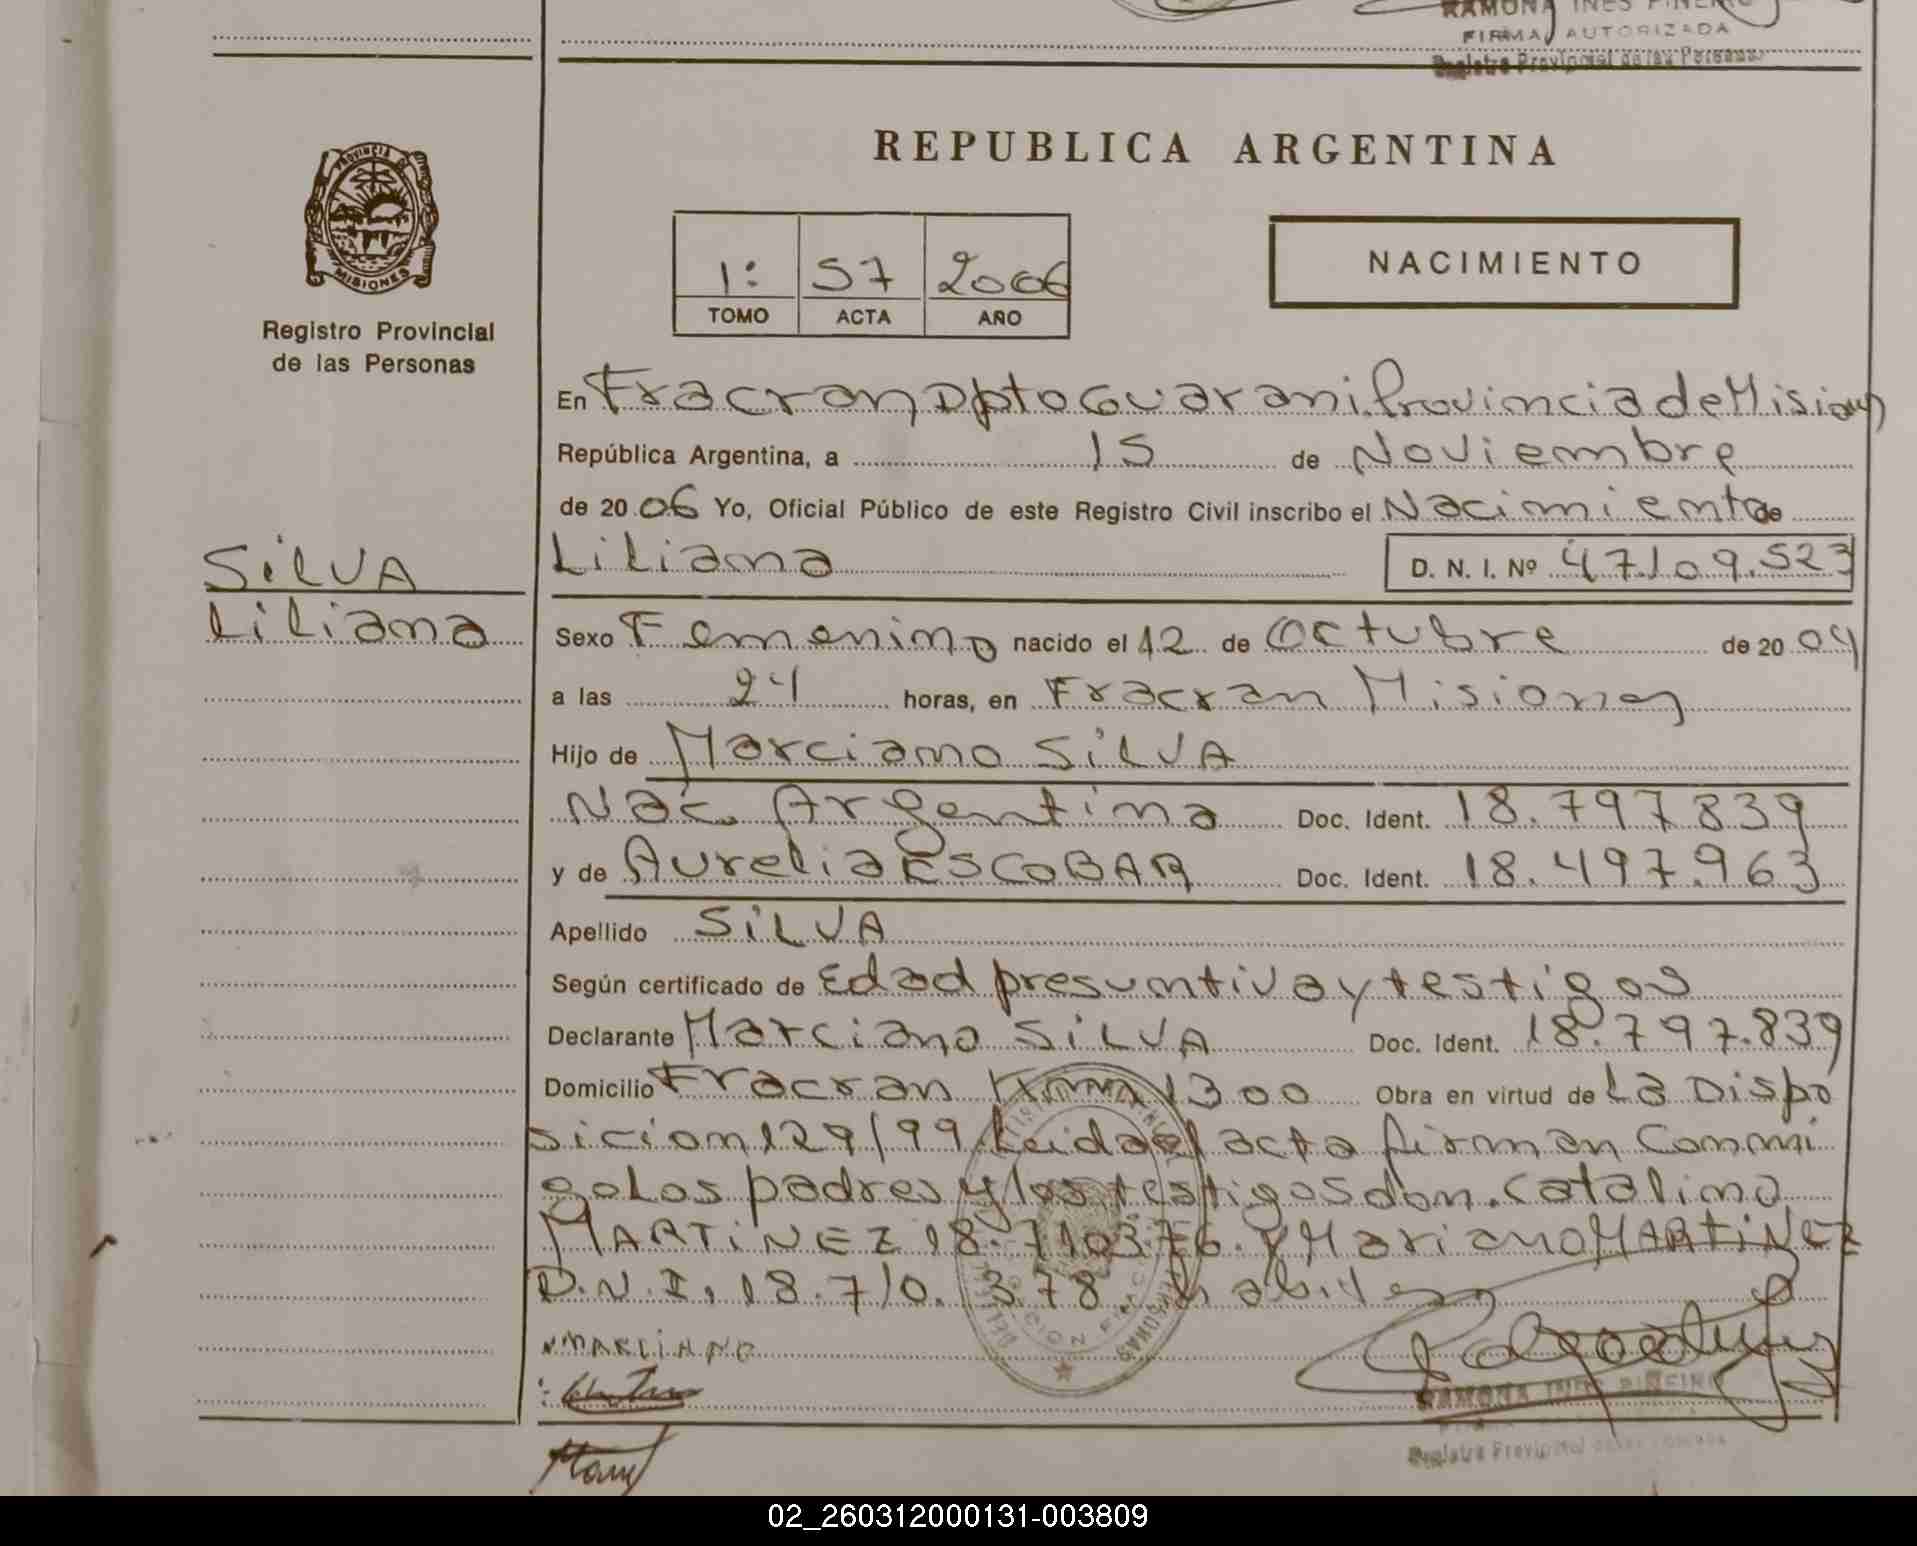 RAMONA INES PIÑEIRO
FIRMA AUTORIZADA
Registro Provincial de las Personas
REPUBLICA ARGENTINA
PROVINCIA DE
MISIONES
Registro Provincial
de las Personas
1: 57 2006
TOMO ACTA AÑO
NACIMIENTO
En Fracran Dpto Guarani Provincia de Misiones
República Argentina, a 15 de Noviembre
de 2006 Yo, Oficial Público de este Registro Civil inscribo el Nacimiento de
SILVA
Liliana
Liliana D. N. I. Nº 47.109.523
Sexo Femenino nacido el 12 de Octubre de 2004
a las 24 horas, en Fracran Misiones
Hijo de Marciano SILVA
Nac. Argentina Doc. Ident. 18.797.839
y de Aurelia ESCOBAR Doc. Ident. 18.497.963
Apellido SILVA
Según certificado de Edad presuntiva y testigos
Declarante Marciano SILVA Doc. Ident. 18.797.839
Domicilio Fracran Km 1300 Obra en virtud de La Dispo
sicion 129/99 Leida el acta firman Conmi
go Los padres y los testigos don. Catalino
MARTINEZ 18.710376. y Mariano MARTINEZ
D.N.I. 18.710.378. habiles
MARCIANO
RAMONA INES PIÑEIRO
Registro Provincial
02_260312000131-003809